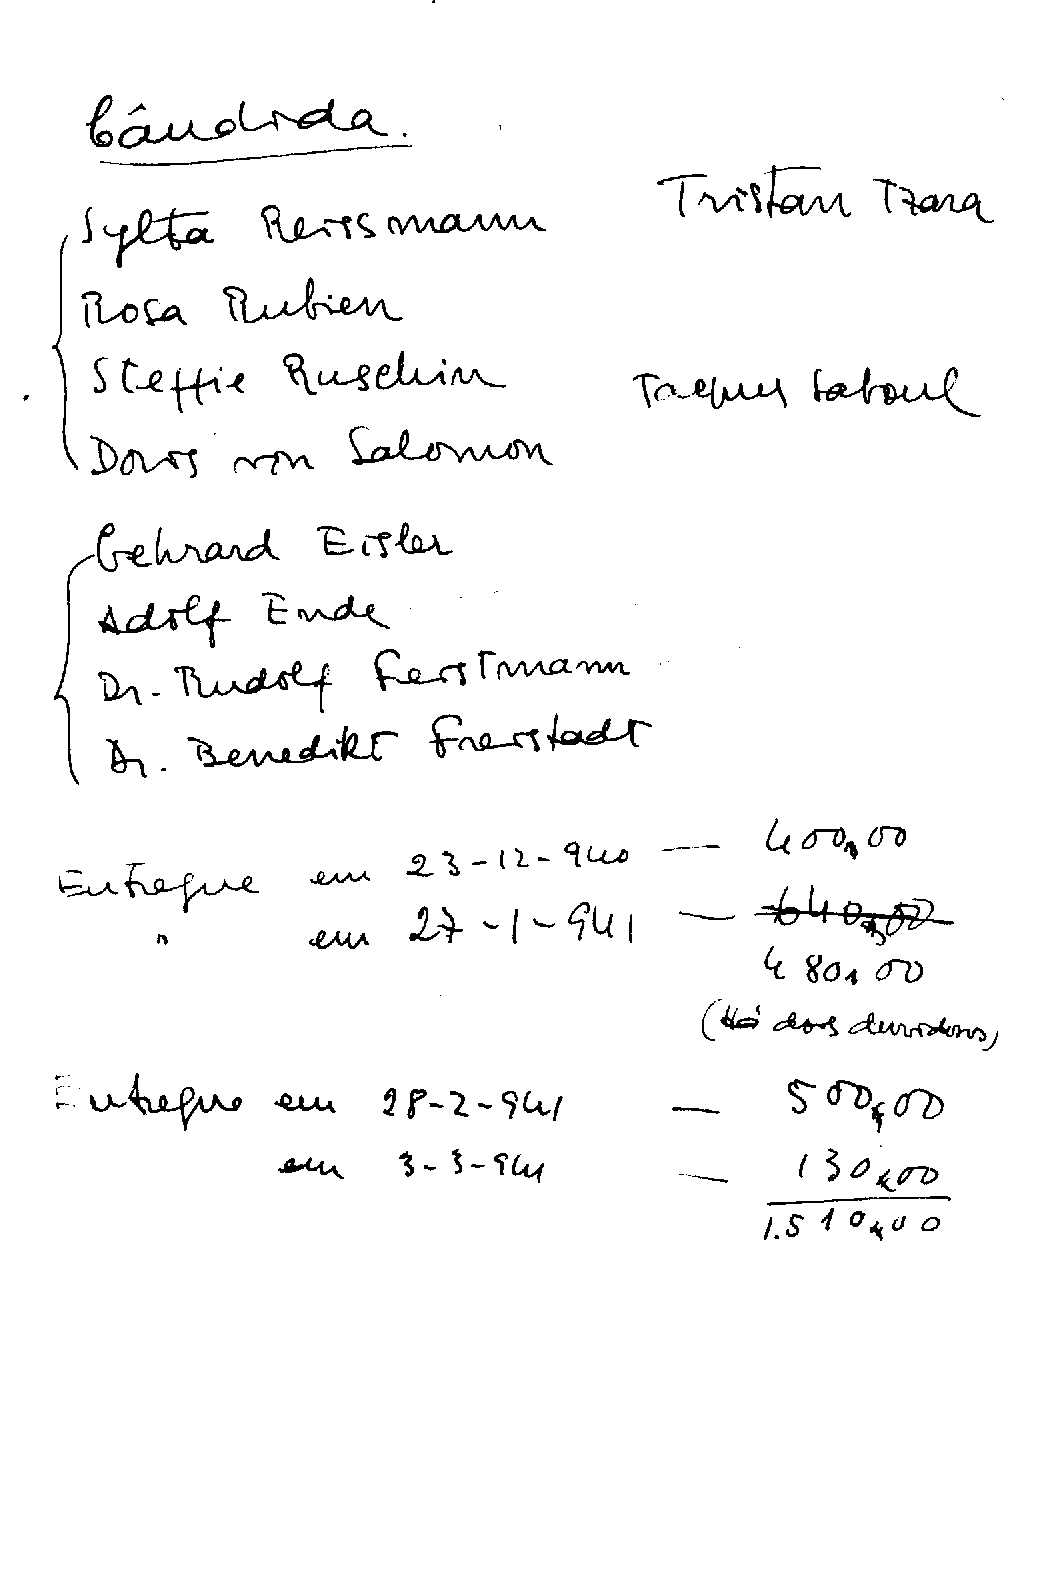 Cândida.
Tristan Tzara
Sylta Reissmann
Rosa Rubien
Steffie Ruschin
Jacques Saboul
Doris von Salomon
Gehrard Eisler
Adolf Ende
Dr. Rudolf Feistmann
Dr. Benedikt Freistadt
Entregue em 23-12-940 — 400,00
" em 27-1-941 — 640,00
480,00
(Há dois duvidosos)
Entregue em 28-2-941 — 500,00
em 3-3-941 — 130,00
1.510,00